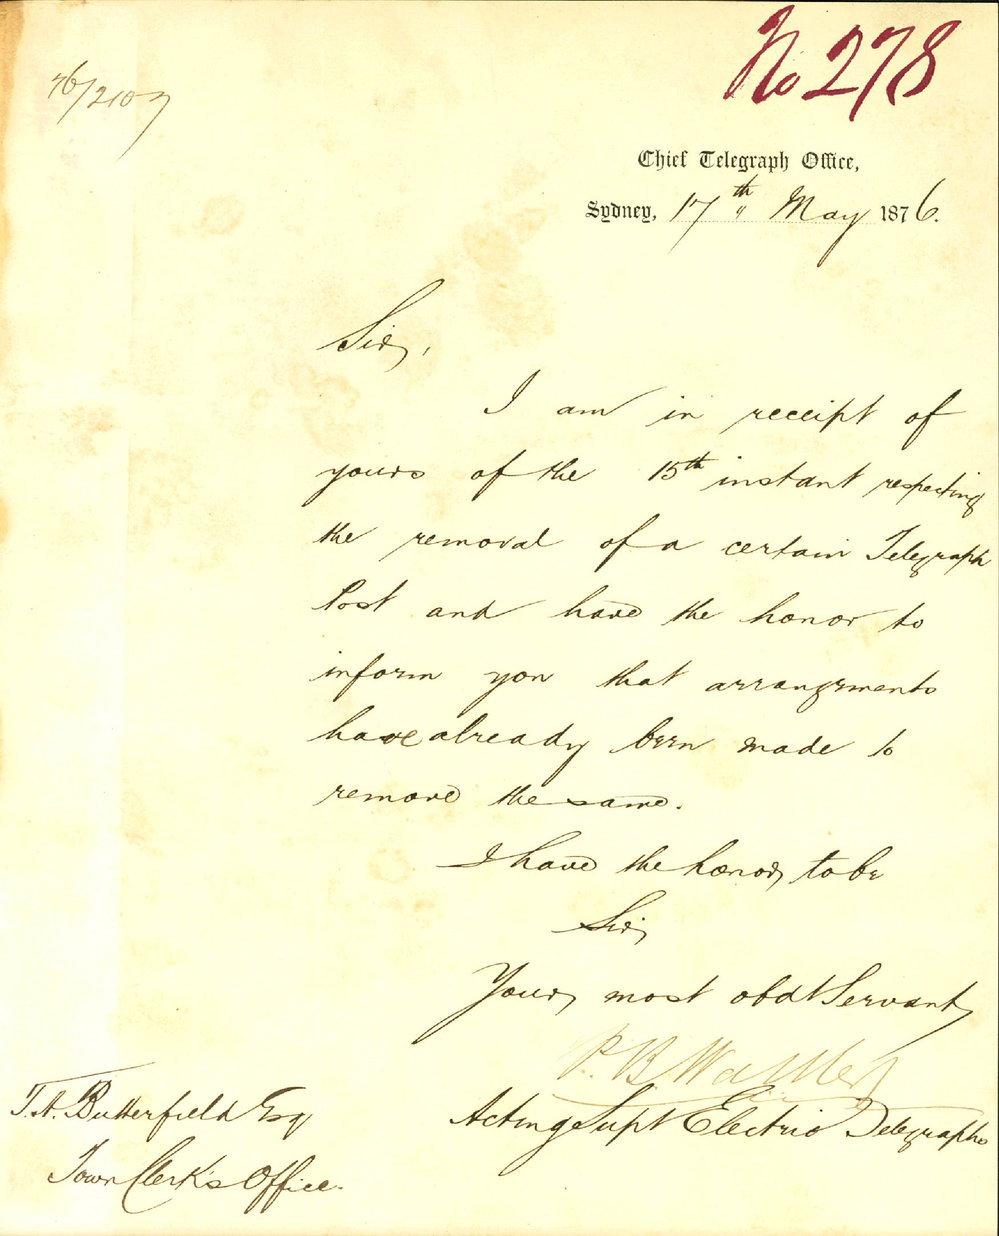 No 278
76/2107
Chief Telegraph Office,
Sydney, 17th May 1876.
Sir,
I am in receipt of
yours of the 15th instant respecting
the removal of a certain Telegraph
Post and have the honor to
inform you that arrangements
have already been made to
remove the same.
I have the honor to be
Sir,
Your most obdt Servant
P. B. Walker
Acting Supt Electric Telegraphs
T. A. Butterfield Esq
Town Clerk's Office.